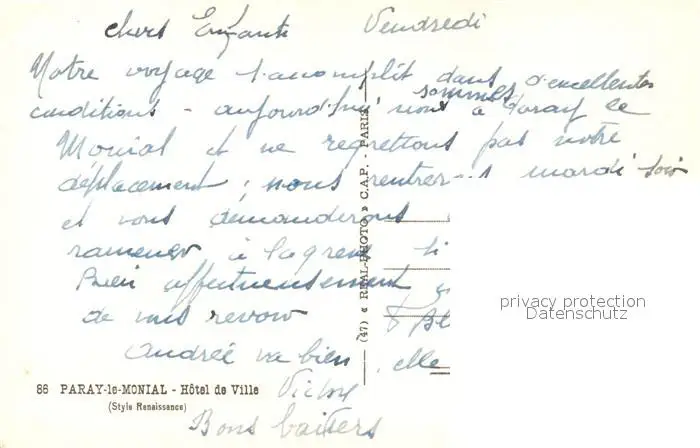 chers Enfants Vendredi
Notre voyage s'accomplit dans d'excellentes
conditions - aujourd'hui nous sommes à Paray le
Monial et ne regrettons pas notre
déplacement ; nous rentrerons mardi soir
et vous demanderons
ramener à
Bien affectueusement
de vous revoir
Andrée va bien, elle
Victor
Bons baisers
86 PARAY-le-MONIAL - Hôtel de Ville
(Style Renaissance)
(47) « REAL-PHOTO » C.A.P. - PARIS
privacy protection
Datenschutz